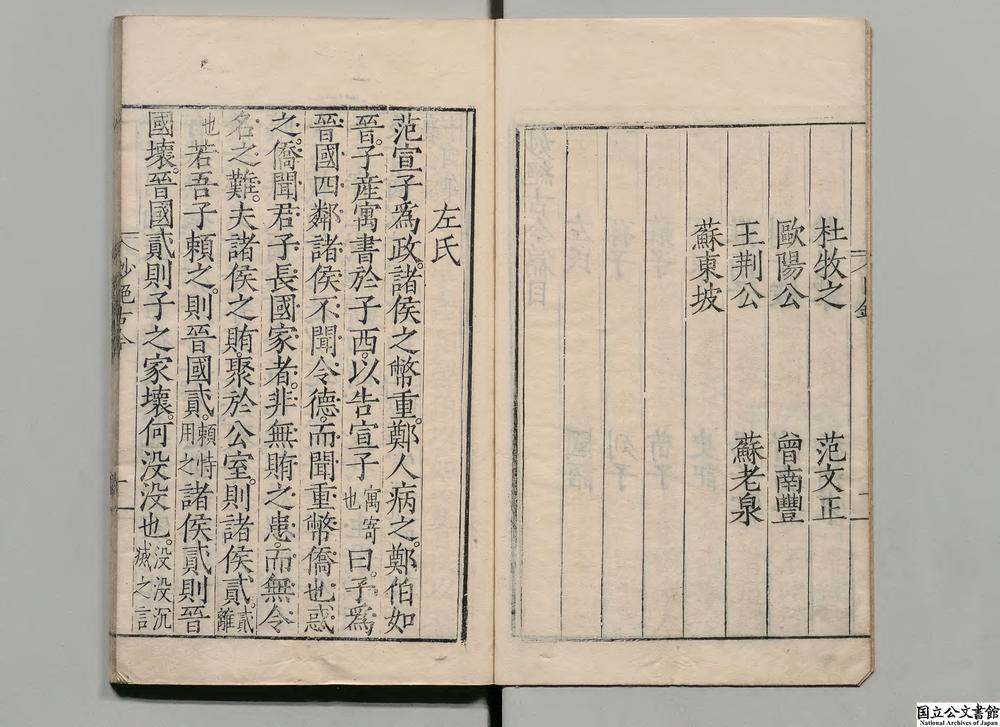 杜牧之 范文正
歐陽公 曾南豐
王荆公 蘇老泉
蘇東坡
左氏
范宣子爲政。諸侯之幣重。鄭人病之。鄭伯如
晉。子產寓書於子西。以告宣子寓寄也曰。子爲
晉國四鄰諸侯不聞令德。而聞重幣僑也惑
之。僑聞君子長國家者。非無賄之患。而無令
名之難。夫諸侯之賄。聚於公室。則諸侯貳。貳離
也若吾子賴之。則晉國貳。賴恃用之諸侯貳則晉
國壞。晉國貳則子之家壞。何没没也。没没沉滅之言
妙絕古今
國立公文書館
National Archives of Japan